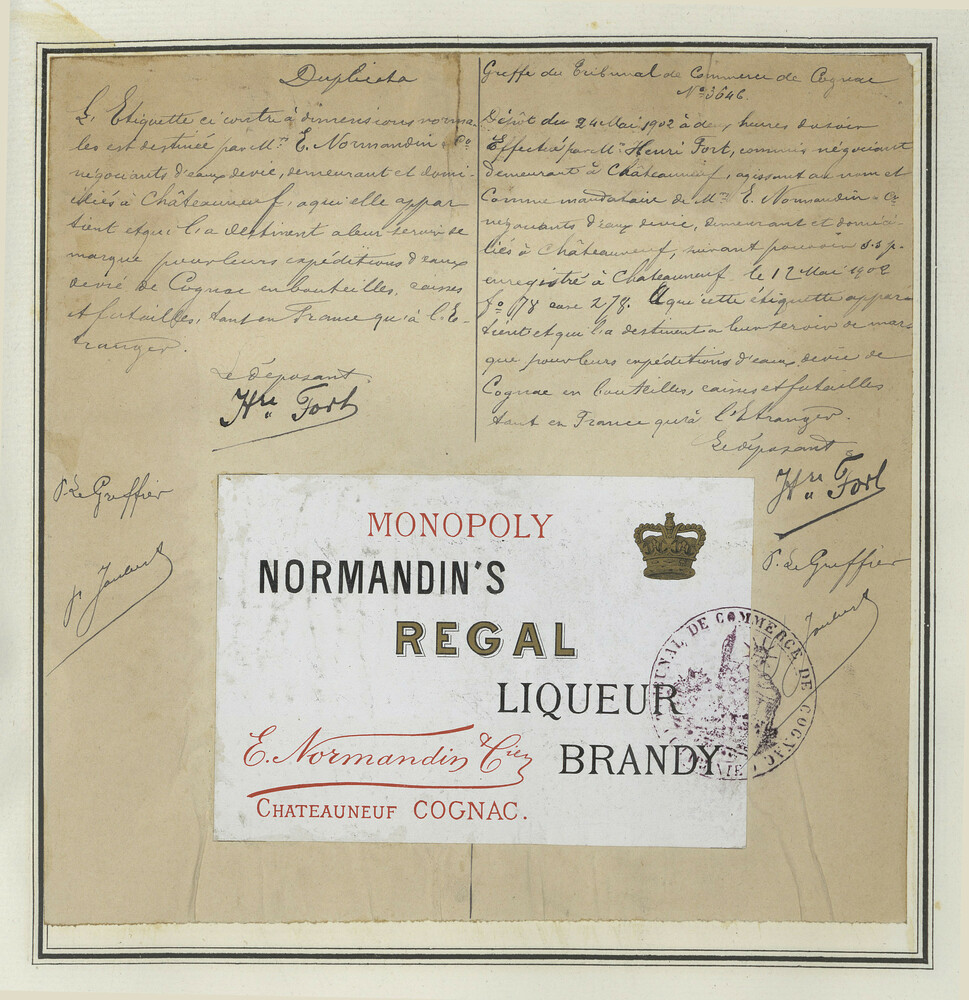 Duplicata
L'Etiquette ci contre à dimensions norma-
les est destinée par Mrs E. Normandin & Co
négociants d'eaux devie, demeurant et domi-
ciliés à Châteauneuf, à qu'elle appar
tient et qu'il a destinent a leur servir de
marque pour leurs expéditions d'eaux
devie de Cognac en bouteilles, caisses
et futailles, tant en France qu'à l'E-
tranger.
Le déposant
Hri Fort
P. Le Greffier
Greffe du Tribunal de Commerce de Cognac
No 3646
Dépôt du 24 Mai 1902 à deux heures du soir
Effectué par Mr Henri Fort, commis négociant
demeurant à Châteauneuf, agissant au nom et
comme mandataire de Mrs E. Normandin & Co
négociants d'eaux devie, demeurant et domici-
liés à Châteauneuf, suivant pouvoir s.s.p.
enregistré à Chateauneuf le 12 Mai 1902
fo 78 case 278. A qui cette étiquette appar
tient et qu'il a destinent a leur servir de mar
que pour leurs expéditions d'eaux devie de
Cognac en bouteilles, caisses et futailles
tant en France qu'à l'Etranger.
Le déposant
Hri Fort
P. Le Greffier
MONOPOLY
NORMANDIN'S
REGAL
LIQUEUR
BRANDY
E. Normandin & Cie
CHATEAUNEUF COGNAC.
TRIBUNAL DE COMMERCE DE COGNAC